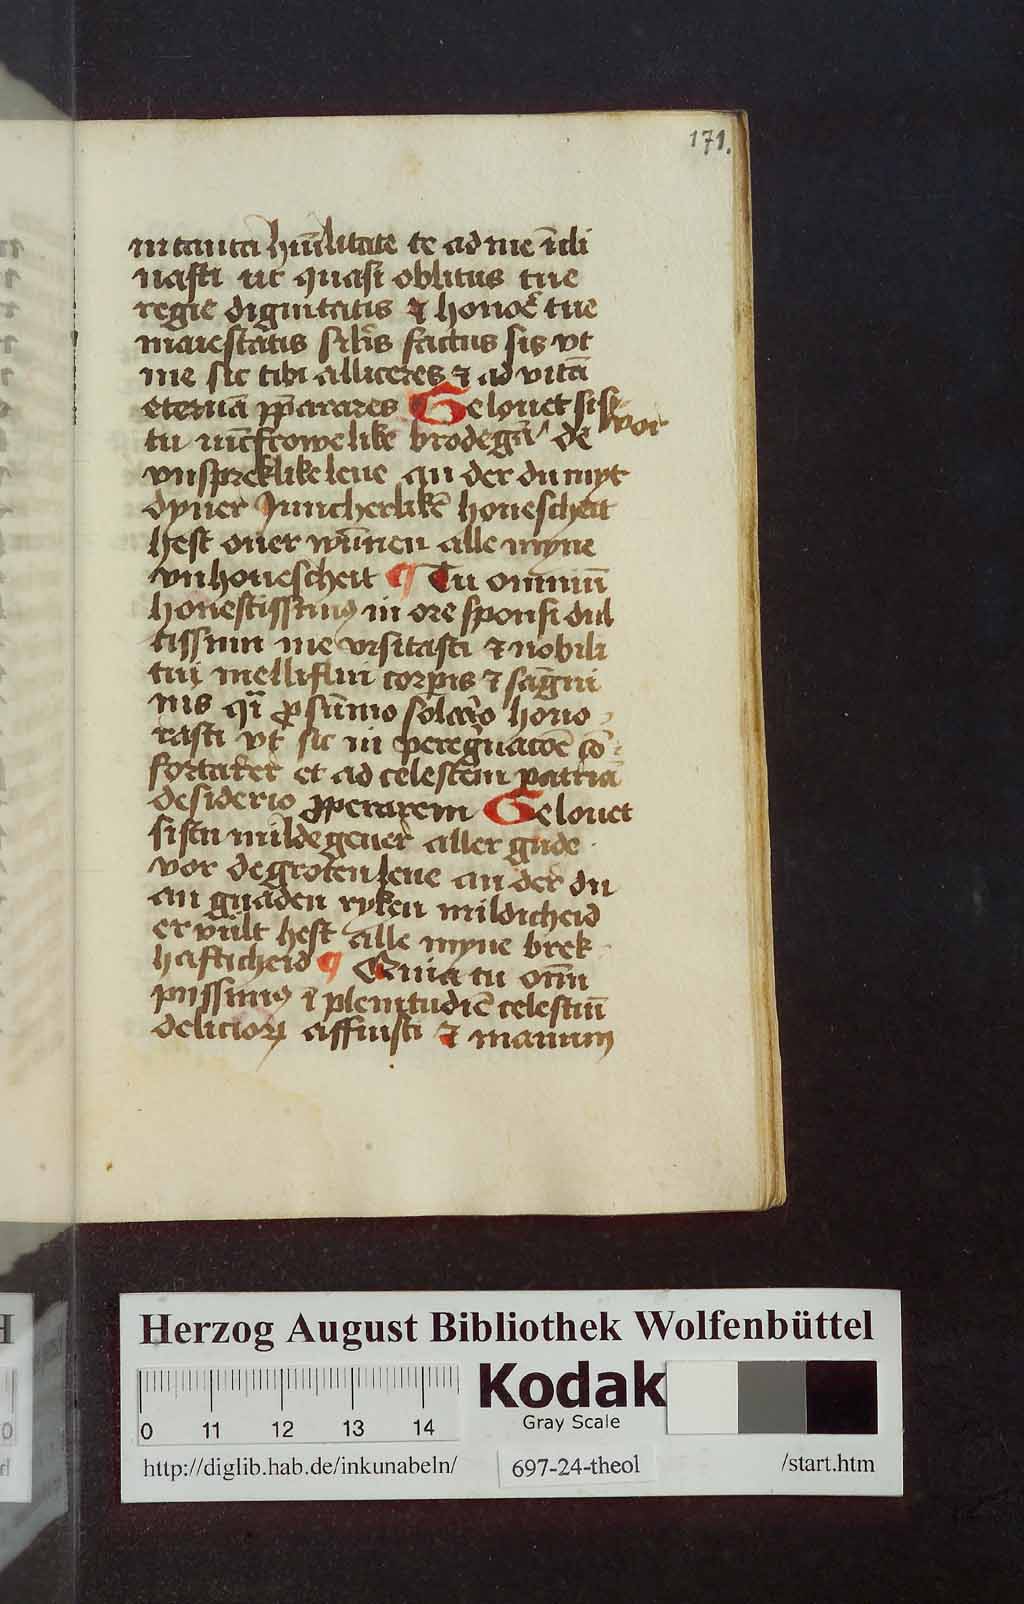 171.
in tanta hūilitate te ad me īcli
nasti ut quasi oblitus tue
regie dignitatis ⁊ honoꝭ tue
maiestātis sil̄is factus sis vt
me sic tibi alliceres ⁊ ad vitā
eternā p̄pararꝫes Gelouet sistu vor
tu iūcfrowelike brodegā de
vnsprekliKe leue an der du myt
dyner Juncherlikē houescheit
hest ouer wūnen alle myne
vnhouescheit ¶ Tu omniū
honestissimꝰ in ore sponsi dul
cissimi me visitasti ⁊ nobili
tui melliflui corpis ⁊ sāgui
nis qͣi ꝓ sūmo solacio hono
rasti vt sic in pereg̓nacōe cō
fortarer et ad celestem patriā
desiderio ꝓperarem Gelouet
sistu milde geuer aller gude
vor de groten leue an der du
an gnaden ryken mildicheid
er vult hest alle myne brek
hafticheid ¶ Quia tu om̄i
piissimꝰ ī plenitudīe celestiū
delicioꝝ affuisti ⁊ manum
Herzog August Bibliothek Wolfenbüttel
Kodak
Gray Scale
0 11 12 13 14
http://diglib.hab.de/inkunabeln/ 697-24-theol /start.htm